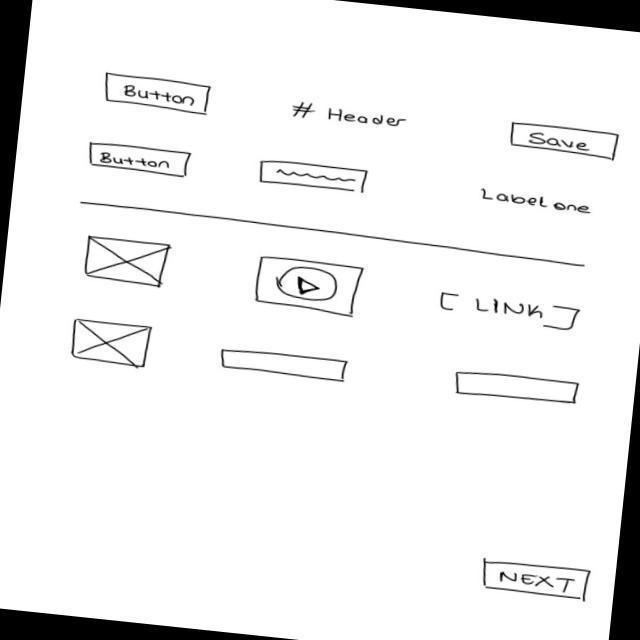 Button
# Header
Save
Button
Label one
[ LINK ]
NEXT